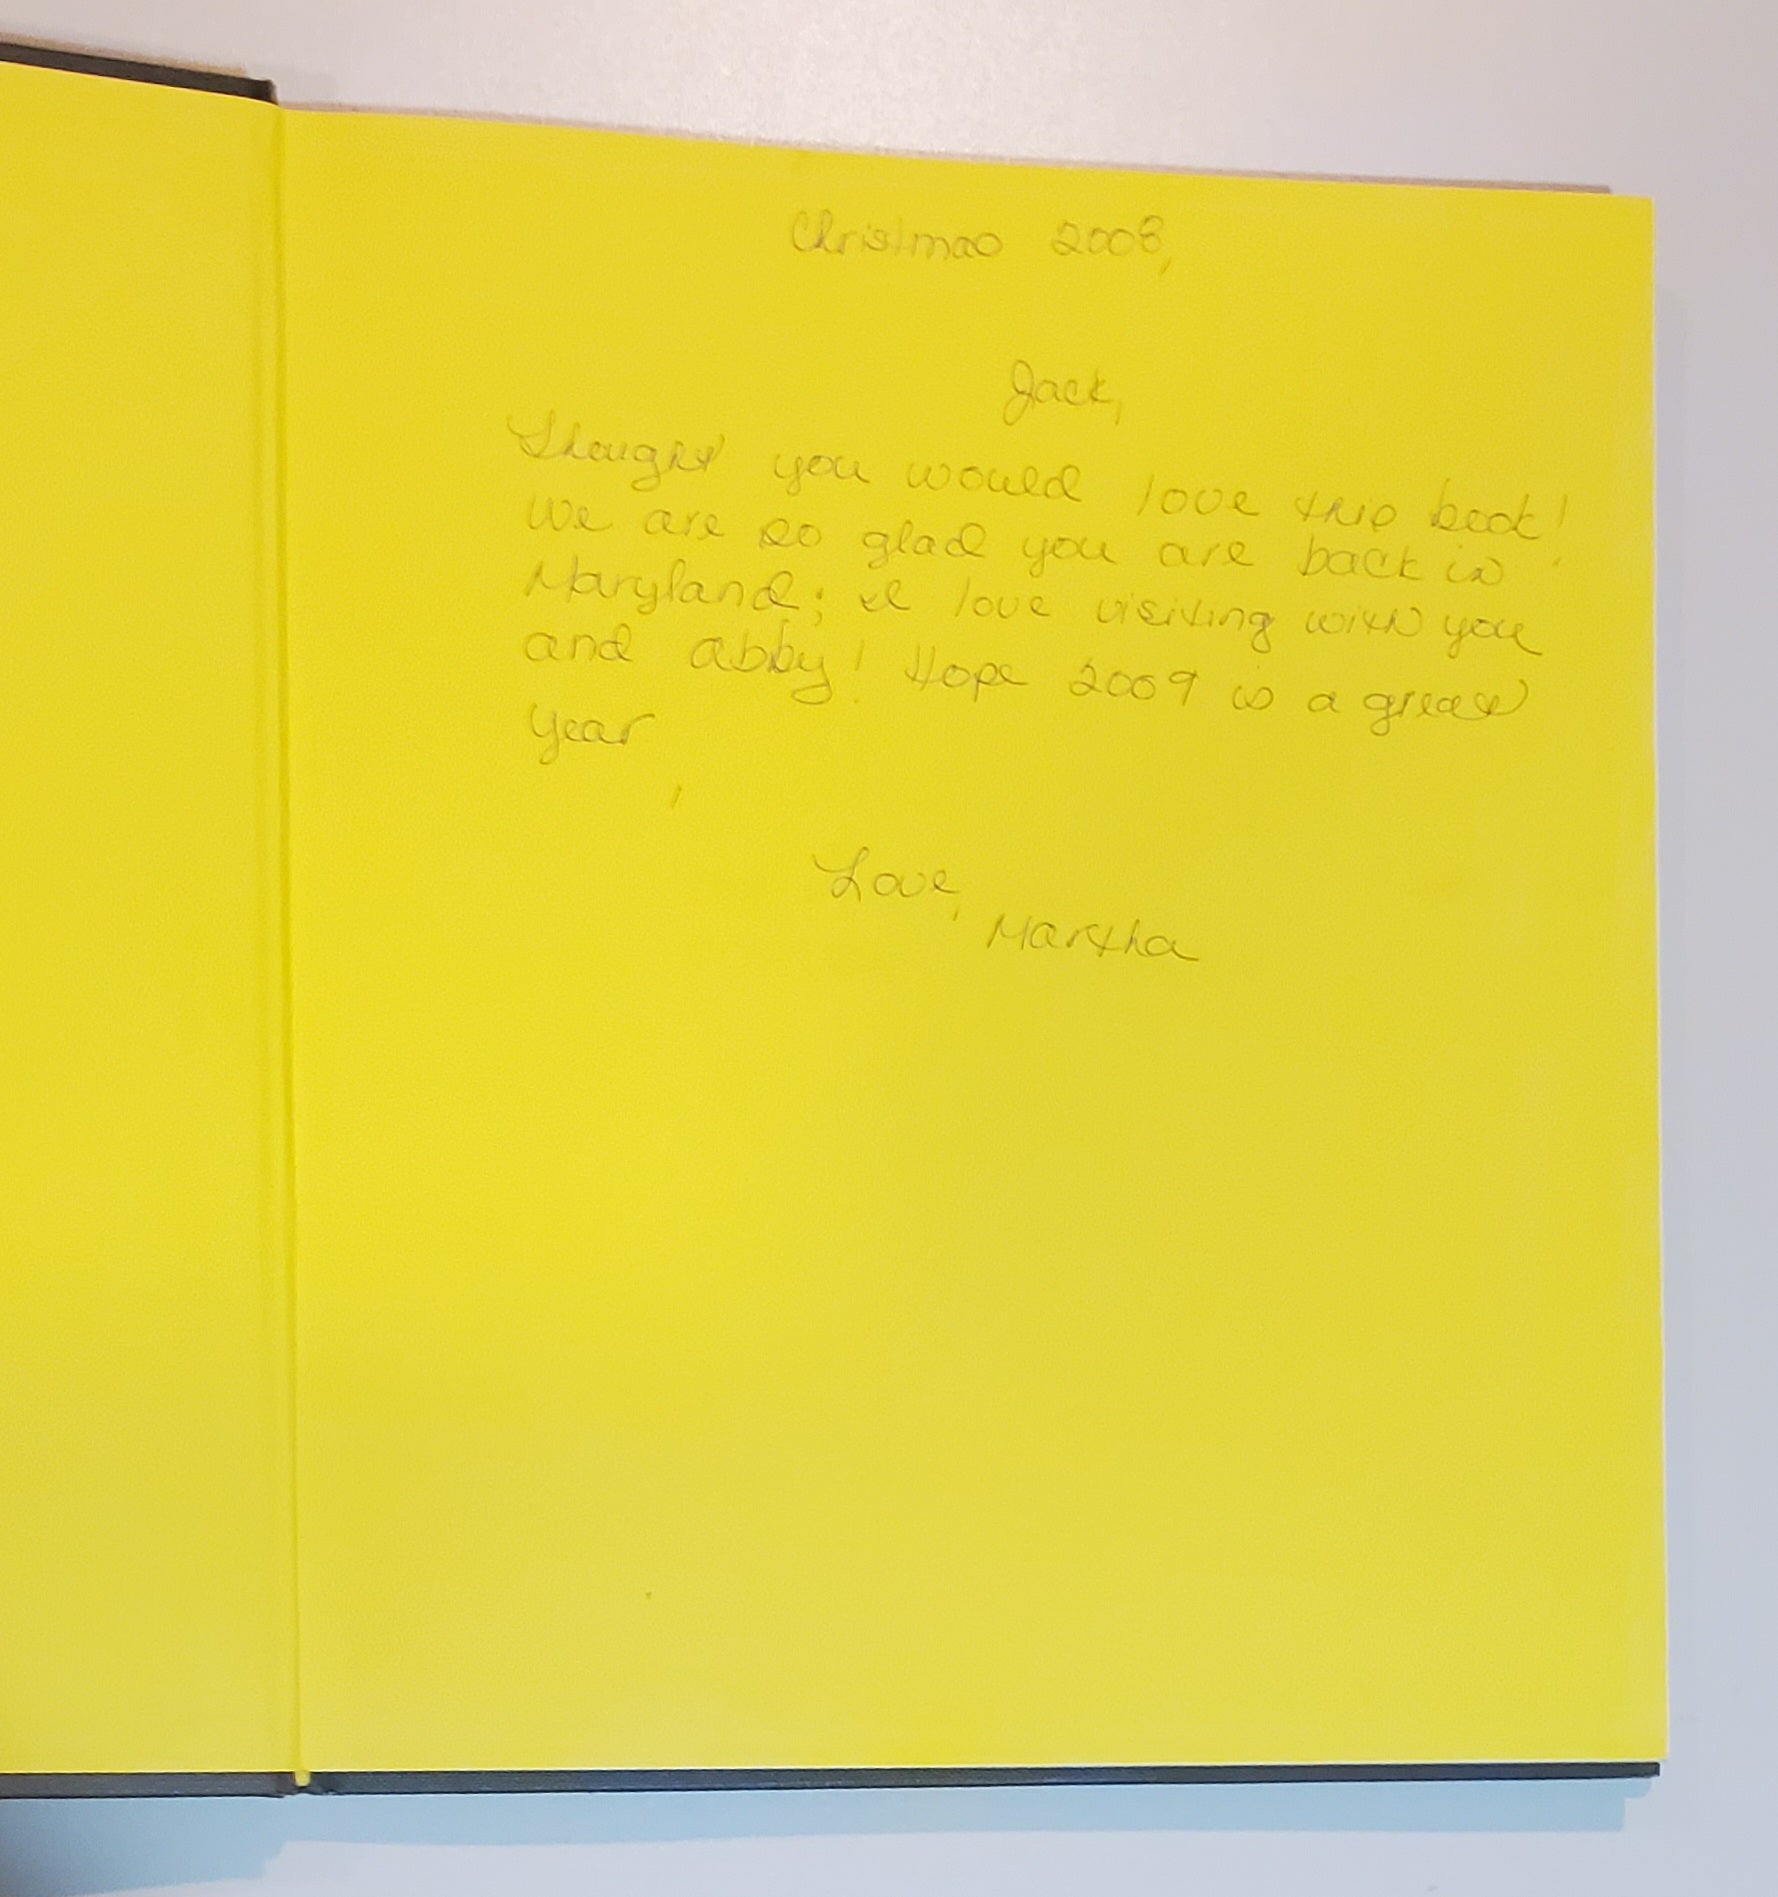 Christmas 2008,
Jack,
Thought you would love this book!
We are so glad you are back in
Maryland; I love visiting with you
and abby! Hope 2009 is a great
year,
Love,
Martha